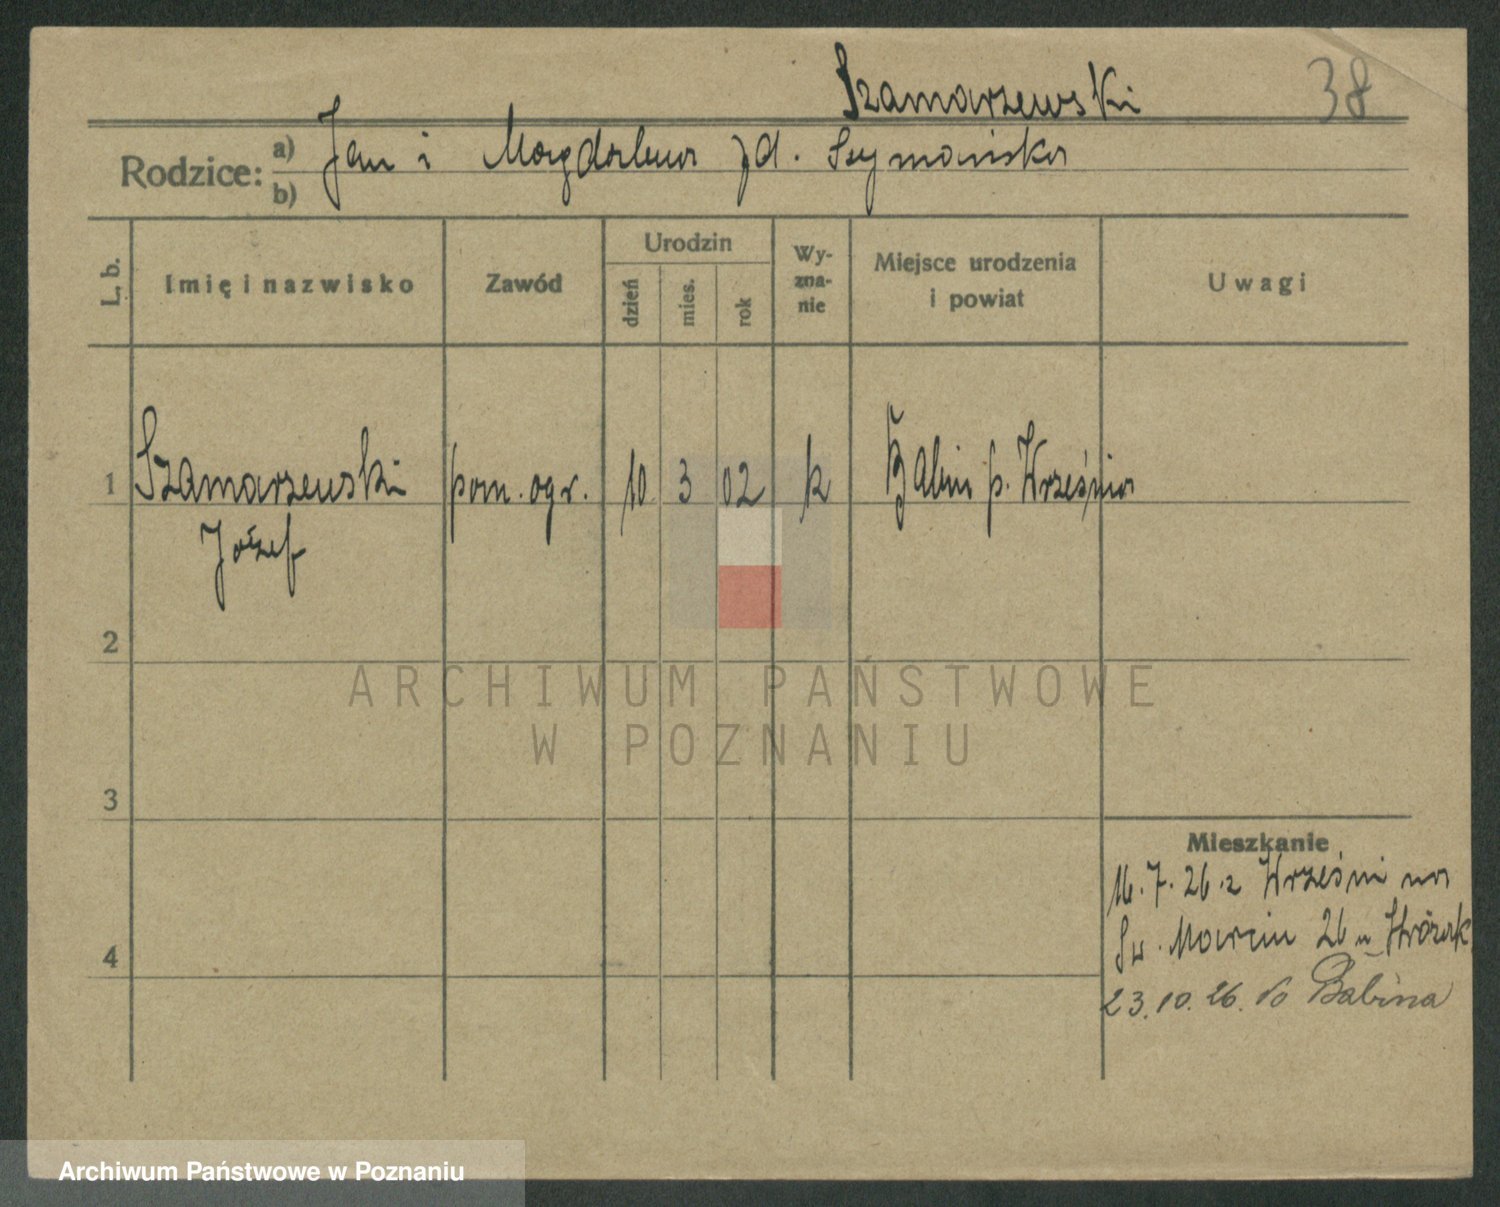 Szamarzewski 38
Rodzice: a) Jan i Magdalena zd. Szymańska
b)
L. b. Imię i nazwisko Zawód Urodzin dzień mies. rok Wyznanie Miejsce urodzenia i powiat Uwagi
1 Szamarzewski pom. ogr. 10 3 02 k Babin p. Września
Józef
2
ARCHIWUM PAŃSTWOWE
W POZNANIU
3
Mieszkanie
16.7.26 z Wrześni na
4 Św. Marcin 26 u
23.10.26. do Babina
Archiwum Państwowe w Poznaniu